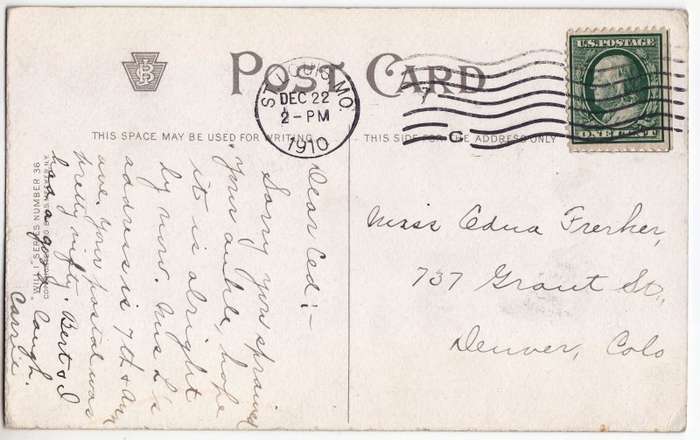 POST CARD
ST. LOUIS, MO.
DEC 22
2-PM
1910
C
U.S. POSTAGE
ONE CENT
THIS SPACE MAY BE USED FOR WRITING
THIS SIDE FOR THE ADDRESS ONLY
Dear Ced:-
Sorry you sprained
your ankle, hope
it is alright
by now. Miss L's
address is 7th & Ann
ave. Your postal was
pretty nifty. Bert & I
had a good laugh.
Carrie
Miss Edna Frerker,
737 Grant St.,
Denver, Colo
WIN-1 SERIES NUMBER 36